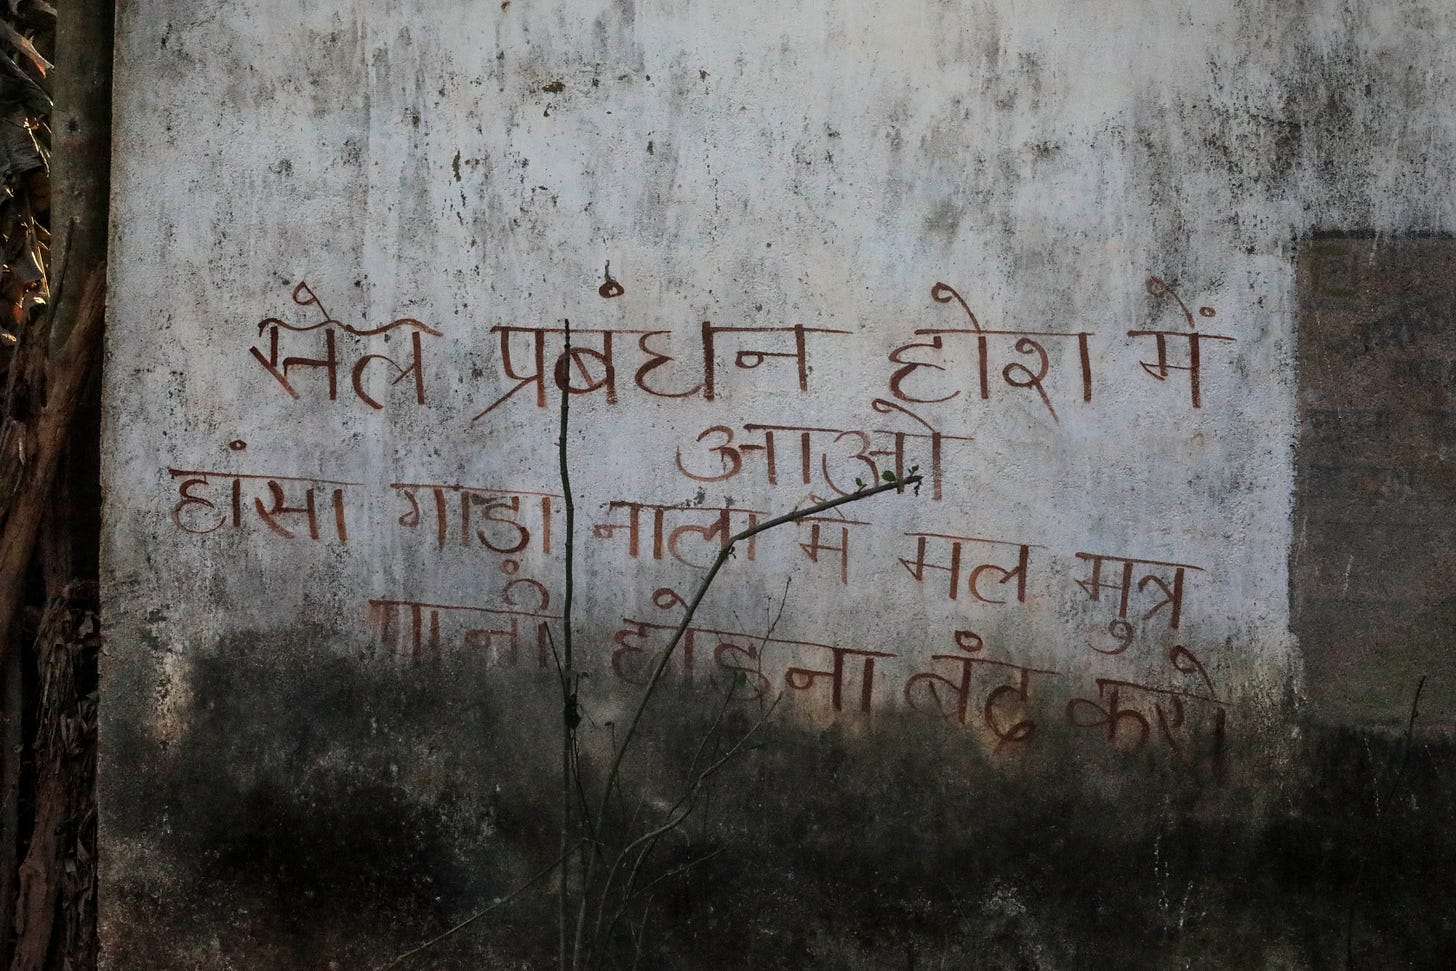 सेल प्रबंधन होश में
आओ
हांसा गाड़ा नाला में मल मुत्र
पानी छोड़ना बंद करो